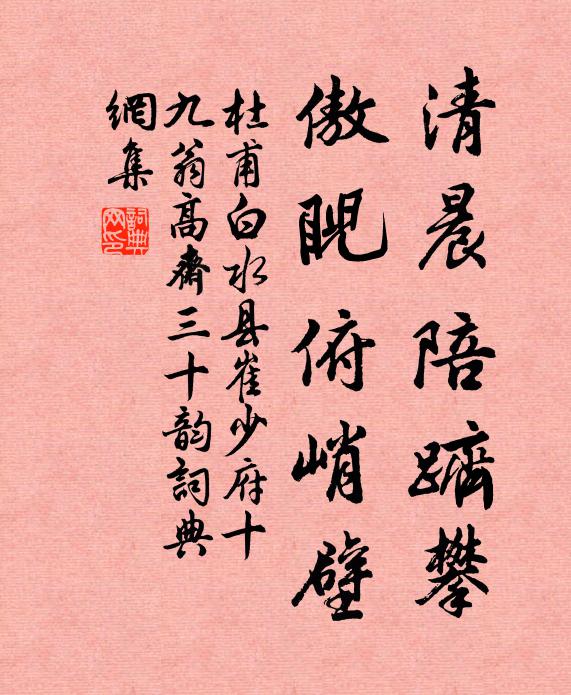 清晨陪躋攀
傲睨俯峭壁
杜甫白水县崔少府十
九翁高齋三十韵詞典
網集
詞典網印